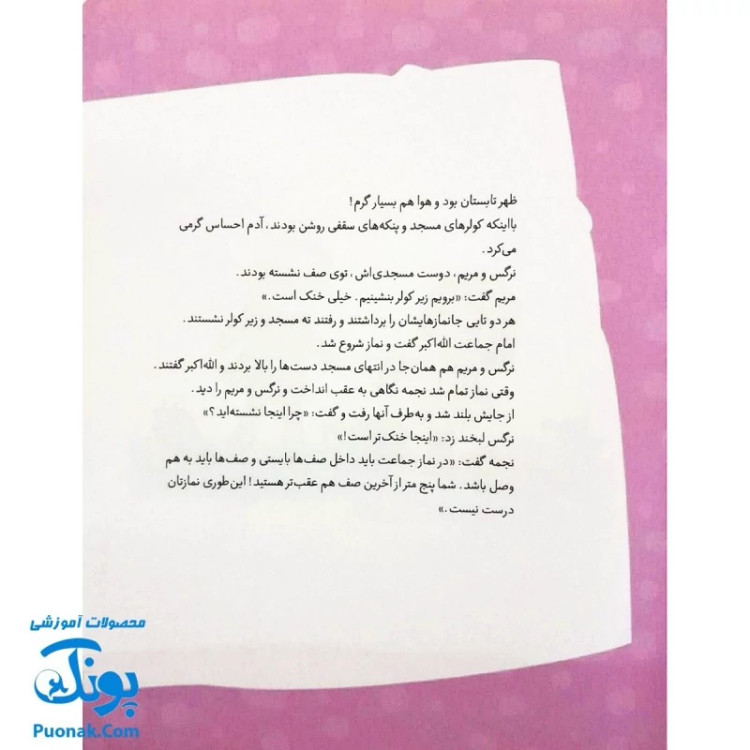 ظهر تابستان بود و هوا هم بسیار گرم!
بااینکه کولرهای مسجد و پنکه‌های سقفی روشن بودند، آدم احساس گرمی
می‌کرد.
نرگس و مریم، دوست مسجدی‌اش، توی صف نشسته بودند.
مریم گفت: «برویم زیر کولر بنشینیم. خیلی خنک است.»
هر دو تایی جانمازهایشان را برداشتند و رفتند ته مسجد و زیر کولر نشستند.
امام جماعت الله‌اکبر گفت و نماز شروع شد.
نرگس و مریم هم همان‌جا در انتهای مسجد دست‌ها را بالا بردند و الله‌اکبر گفتند.
وقتی نماز تمام شد نجمه نگاهی به عقب انداخت و نرگس و مریم را دید.
از جایش بلند شد و به‌طرف آنها رفت و گفت: «چرا اینجا نشسته‌اید؟»
نرگس لبخند زد: «اینجا خنک‌تر است!»
نجمه گفت: «در نماز جماعت باید داخل صف‌ها بایستی و صف‌ها باید به هم
وصل باشد. شما پنج متر از آخرین صف هم عقب‌تر هستید! این‌طوری نمازتان
درست نیست.»
محصولات آموزشی
پونک
Puonak.Com